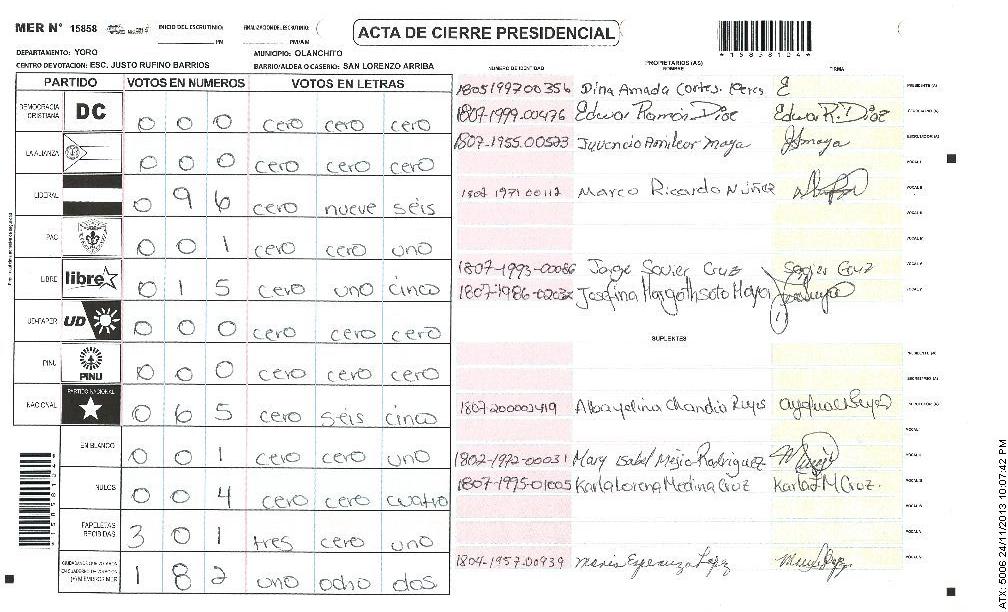 MER N° 15858 INICIO DEL ESCRUTINIO: PM FINALIZACION DEL ESCRUTINIO: PM/AM
ACTA DE CIERRE PRESIDENCIAL
*15858104*
DEPARTAMENTO: YORO MUNICIPIO: OLANCHITO
CENTRO DE VOTACION: ESC. JUSTO RUFINO BARRIOS BARRIO/ALDEA O CASERIO: SAN LORENZO ARRIBA
PARTIDO VOTOS EN NUMEROS VOTOS EN LETRAS
DEMOCRACIA CRISTIANA DC 0 0 0 cero cero cero
LA ALIANZA 0 0 0 cero cero cero
LIBERAL 0 9 6 cero nueve séis
PAC 0 0 1 cero cero uno
LIBRE libre 0 1 5 cero uno cinco
UD-FAPER UD 0 0 0 cero cero cero
PINU PINU 0 0 0 cero cero cero
NACIONAL PARTIDO NACIONAL 0 6 5 cero séis cinco
EN BLANCO 0 0 1 cero cero uno
NULOS 0 0 4 cero cero cuatro
PAPELETAS RECIBIDAS 3 0 1 tres cero uno
1 8 2 uno ocho dos
NUMERO DE IDENTIDAD PROPIETARIOS (AS) NOMBRE FIRMA
1805199700356 Dina Amada Cortes. PRESIDENTE (A)
1807-1999-00476 Edwar Ramón Díaz Edwar R. Díaz SECRETARIO (A)
1807-1955-00523 Juvencio Amilcar Maya ESCRUTADOR (A)
VOCAL I
1807 1971 00112 Marco Ricardo Núñez VOCAL II
1807-1993-00086 Jorge Savier Cruz Savier Cruz VOCAL V
Josefina Margoth Soto Maya
SUPLENTES
PRESIDENTE (A)
SECRETARIO (A)
Chandia Reyes
VOCAL I
1802-1972-00031 Mary Isabel Mejia Rodriguez
1807-1995-01005 Karla Lorena Medina Cruz Karla L M Cruz.
1804-1957-00939 Maria Esperanza Lopz
*15858104*
ATX: 5006 24/11/2013 10:07:42 PM